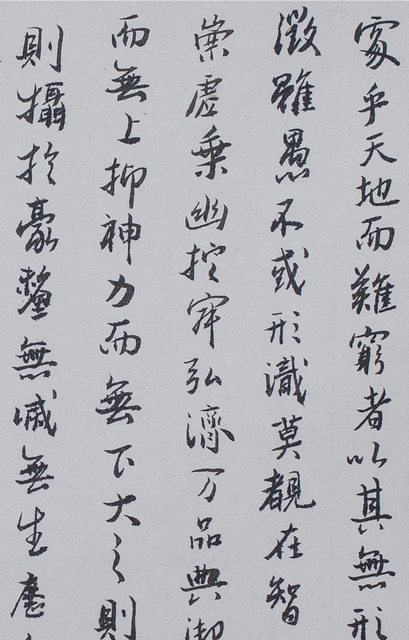 處乎天地而難窮者以其無形
徵雖愚不或形潛莫覩在智
崇虛乘幽控寂弘濟万品典御
而無上抑神力而無下大之則
則攝於豪釐無滅無生歷